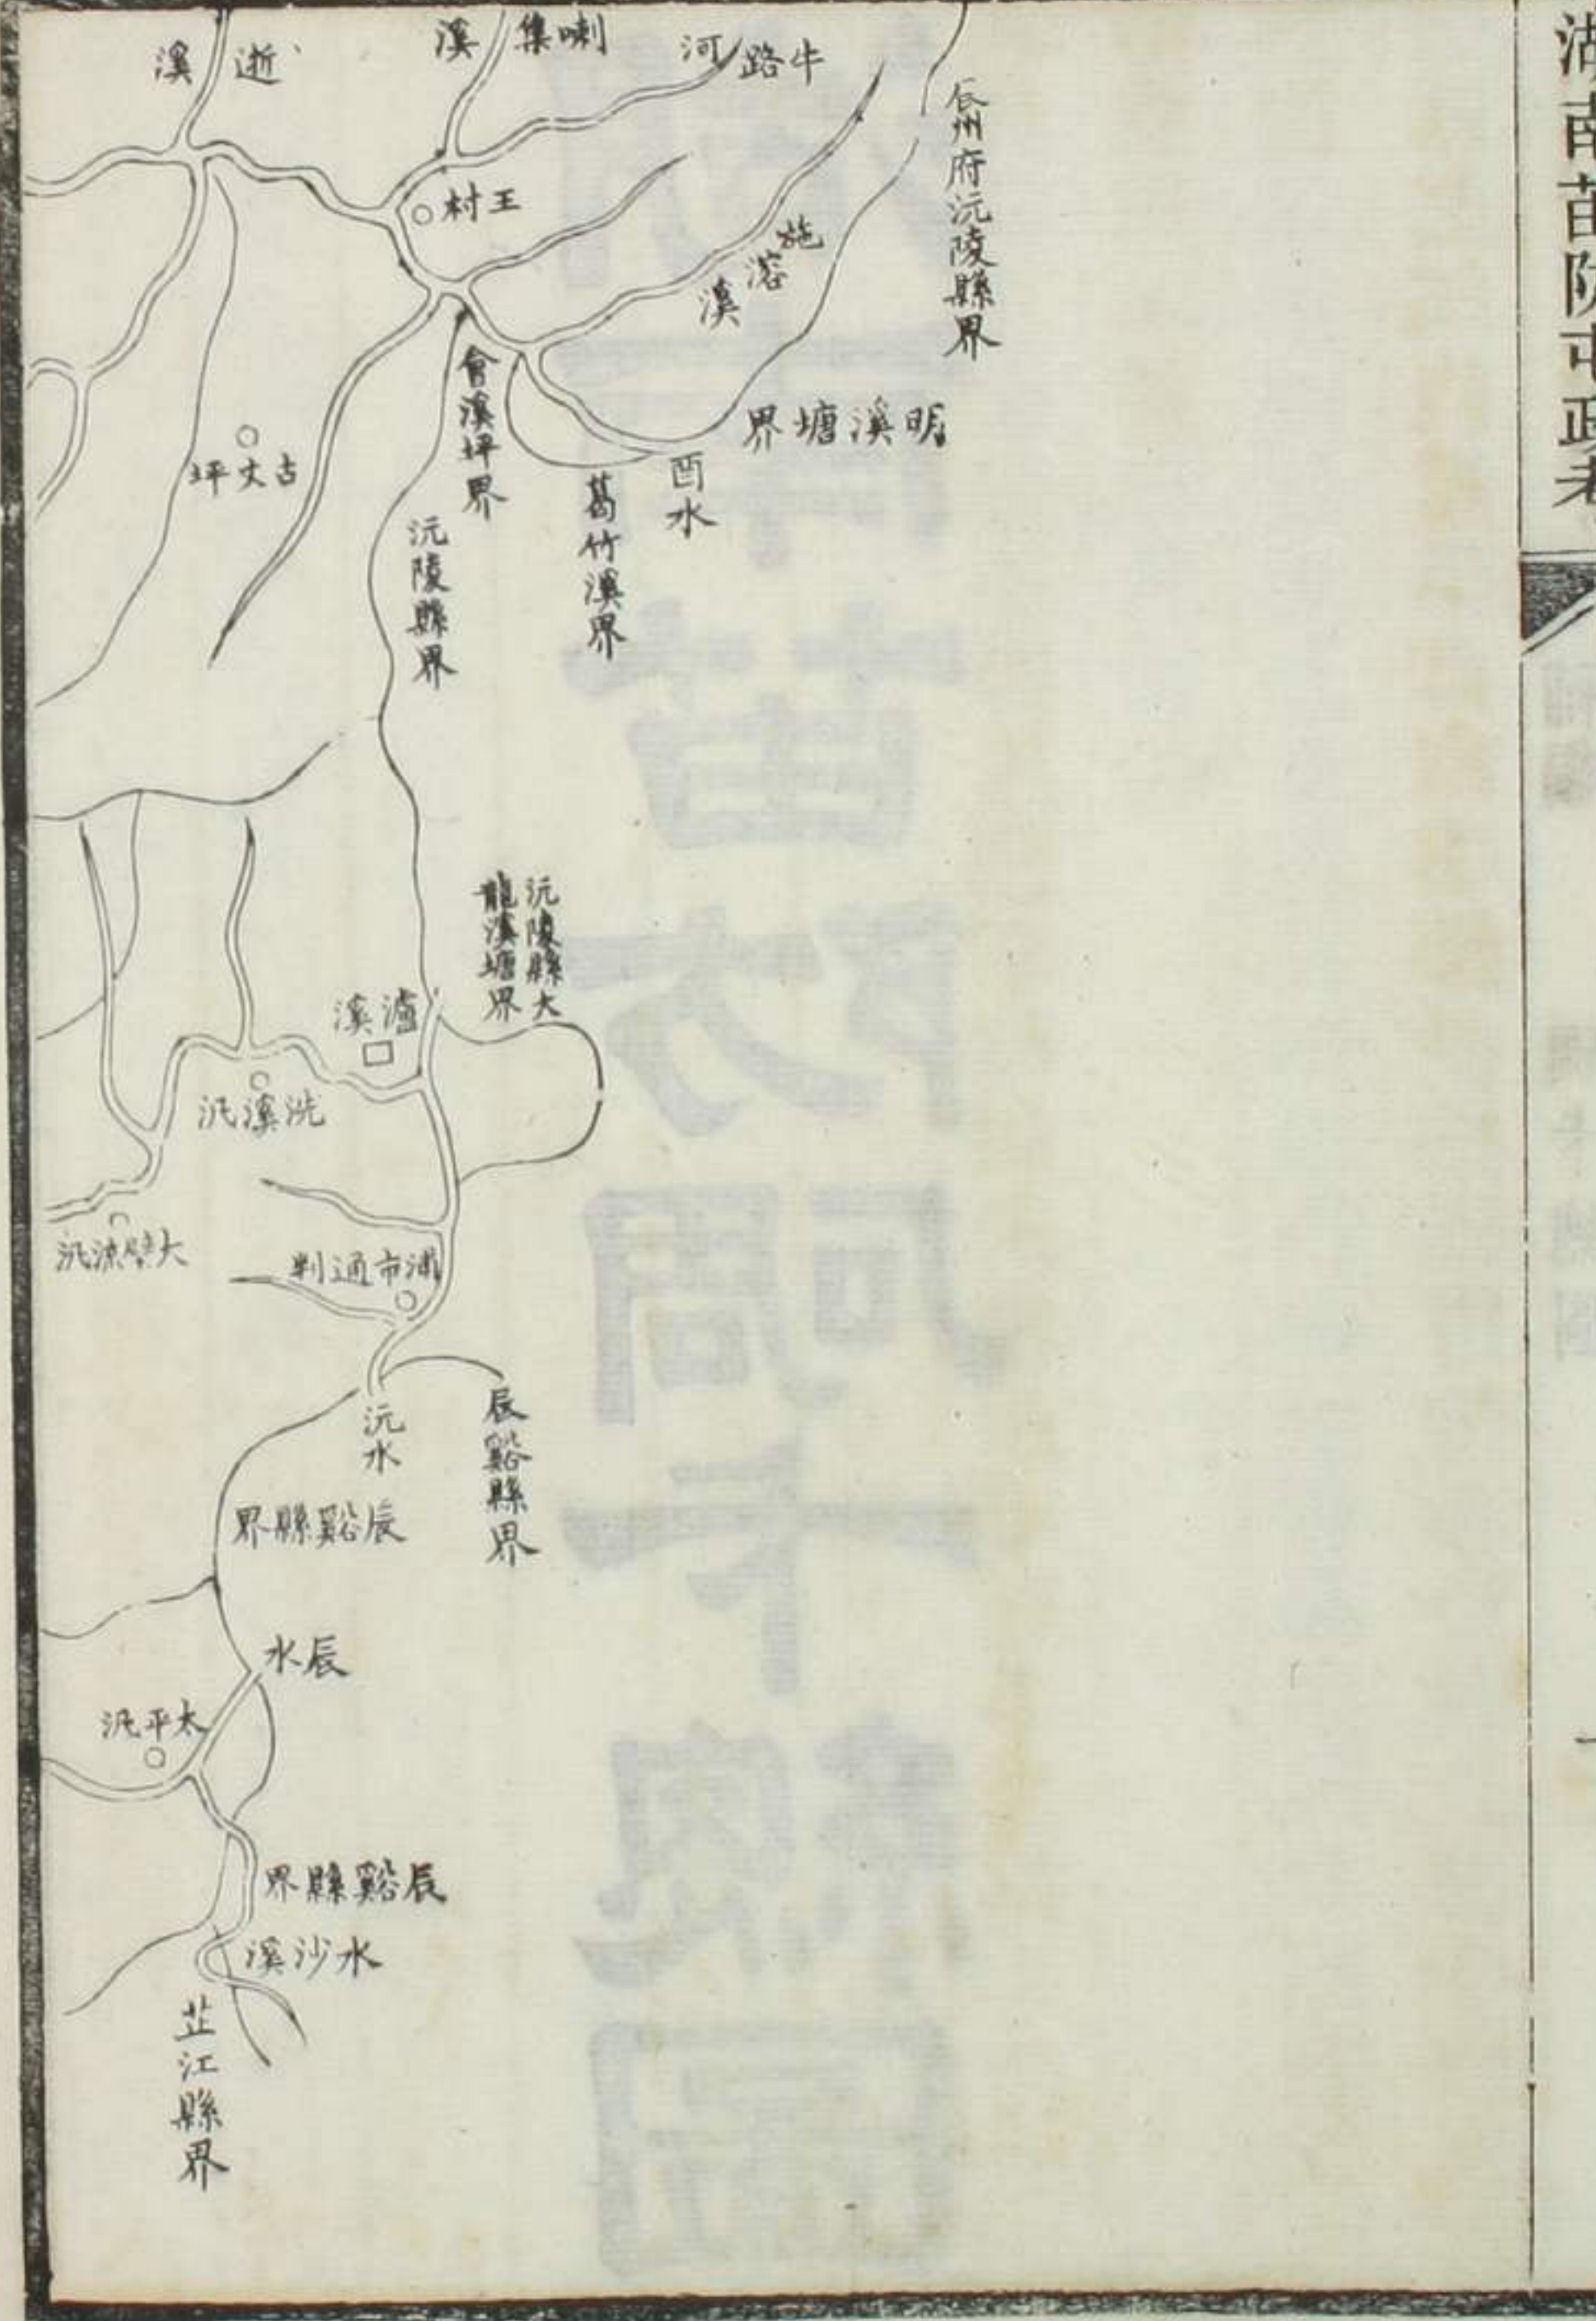 湖南苗防屯政考
辰州府沅陵縣界
牛路河
喇集溪
逝溪
王村
施溶溪
明溪塘界
酉水
葛竹溪界
會溪坪界
沅陵縣界
古丈坪
沅陵縣大
龍溪塘界
瀘溪
洗溪汛
浦市通判
沅水
辰谿縣界
辰谿縣界
辰水
太平汛
辰谿縣界
水沙溪
芷江縣界